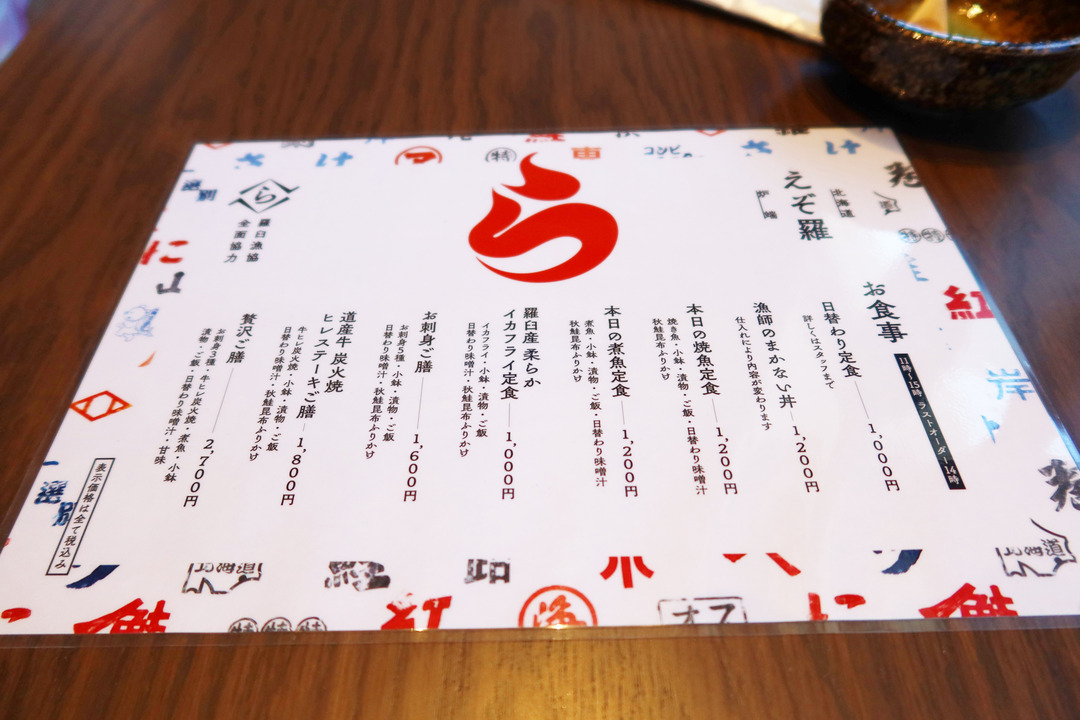 北海道
えぞ羅
炉端
お食事
11時〜15時 ラストオーダー14時
日替わり定食 1,000円
詳しくはスタッフまで
漁師のまかない丼 1,200円
仕入れにより内容が変わります
本日の焼魚定食 1,200円
焼き魚・小鉢・漬物・ご飯・日替わり味噌汁
秋鮭昆布ふりかけ
本日の煮魚定食 1,200円
煮魚・小鉢・漬物・ご飯・日替わり味噌汁
秋鮭昆布ふりかけ
羅臼産柔らか
イカフライ定食 1,000円
イカフライ・小鉢・漬物・ご飯
日替わり味噌汁・秋鮭昆布ふりかけ
お刺身ご膳 1,600円
お刺身5種・小鉢・漬物・ご飯
日替わり味噌汁・秋鮭昆布ふりかけ
道産牛 炭火焼
ヒレステーキご膳 1,800円
牛ヒレ炭火焼・小鉢・漬物・ご飯
日替わり味噌汁・秋鮭昆布ふりかけ
贅沢ご膳 2,700円
お刺身3種・牛ヒレ炭火焼・煮魚・小鉢
漬物・ご飯・日替わり味噌汁・甘味
表示価格は全て税込み
ら
羅臼漁協
全面協力
ら
さけ
特
コンビ
さけ
紅
岸
に
山
選別
北海道
オス
に